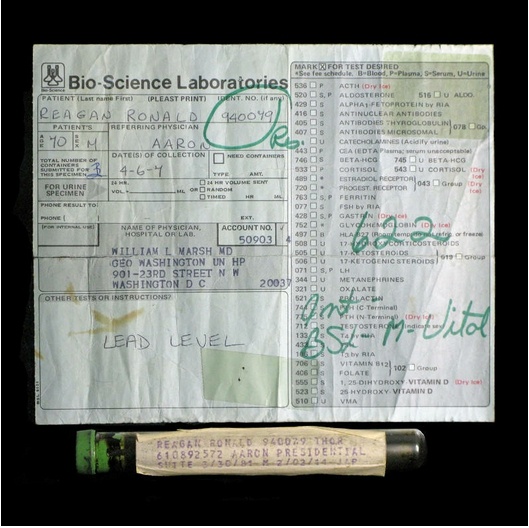 Bio-Science Laboratories
Bio-Science
PATIENT (Last name First) (PLEASE PRINT) IDENT. NO. (if any)
REAGAN RONALD 940049
AGE 70 SEX M
PATIENT'S REFERRING PHYSICIAN
AARON
TOTAL NUMBER OF CONTAINERS SUBMITTED FOR THIS SPECIMEN
DATE(S) OF COLLECTION
NEED CONTAINERS
TYPE AMT.
FOR URINE SPECIMEN
24 HR. 24 HR VOLUME SENT
VOL. OR RANDOM
TIMED HR ML
PHONE RESULT TO
PHONE ( EXT.
(FOR INTERNAL USE) NAME OF PHYSICIAN, HOSPITAL OR LAB. ACCOUNT NO.
50903 4
WILLIAM L MARSH MD
GEO WASHINGTON UN HP
901-23RD STREET N W
WASHINGTON D C 20037
OTHER TESTS OR INSTRUCTIONS:
LEAD LEVEL
MARK X FOR TEST DESIRED
*See fee schedule. B=Blood, P=Plasma, S=Serum, U=Urine
536 P ACTH (Dry Ice)
520 S, P ALDOSTERONE 516 U ALDO.
429 S ALPHA1-FETOPROTEIN by RIA
416 S ANTINUCLEAR ANTIBODIES
405 S ANTIBODIES THYROGLOBULIN
407 S ANTIBODIES MICROSOMAL
078 Group
U CATECHOLAMINES (Acidify urine)
443 P CEA (EDTA Plasma, serum unacceptable)
746 S BETA-HCG 745 U BETA-HCG
533 P CORTISOL 543 U CORTISOL (Dry Ice)
489 * ESTRADIOL RECEPTOR
720 * PROGEST. RECEPTOR
043 Group (Dry Ice)
763 S, P FERRITIN
077 S FSH by RIA
428 S, P (Dry Ice)
622
497 B HLA
508 U 17- CORTICOSTEROIDS
505 U 17-KETOSTEROIDS
506 U 17-KETOGENIC STEROIDS
019 Group
071 S, P LH
344 U METANEPHRINES
321 U OXALATE
521 PROLACTIN
(C-Terminal)
(N-Terminal) (Dry Ice)
712 TESTOSTERONE (Indicate sex)
BSL-M-Vital
T3 by RIA
706 S VITAMIN B12
406 S FOLATE
102 Group
555 S 1, 25-DIHYDROXY-VITAMIN D (Dry Ice)
523 S 25 HYDROXY-VITAMIN D
510 U VMA
REAGAN RONALD 940049 THOR
610892572 AARON PRESIDENTIAL
SUITE 3/30/81 M 2/02/11